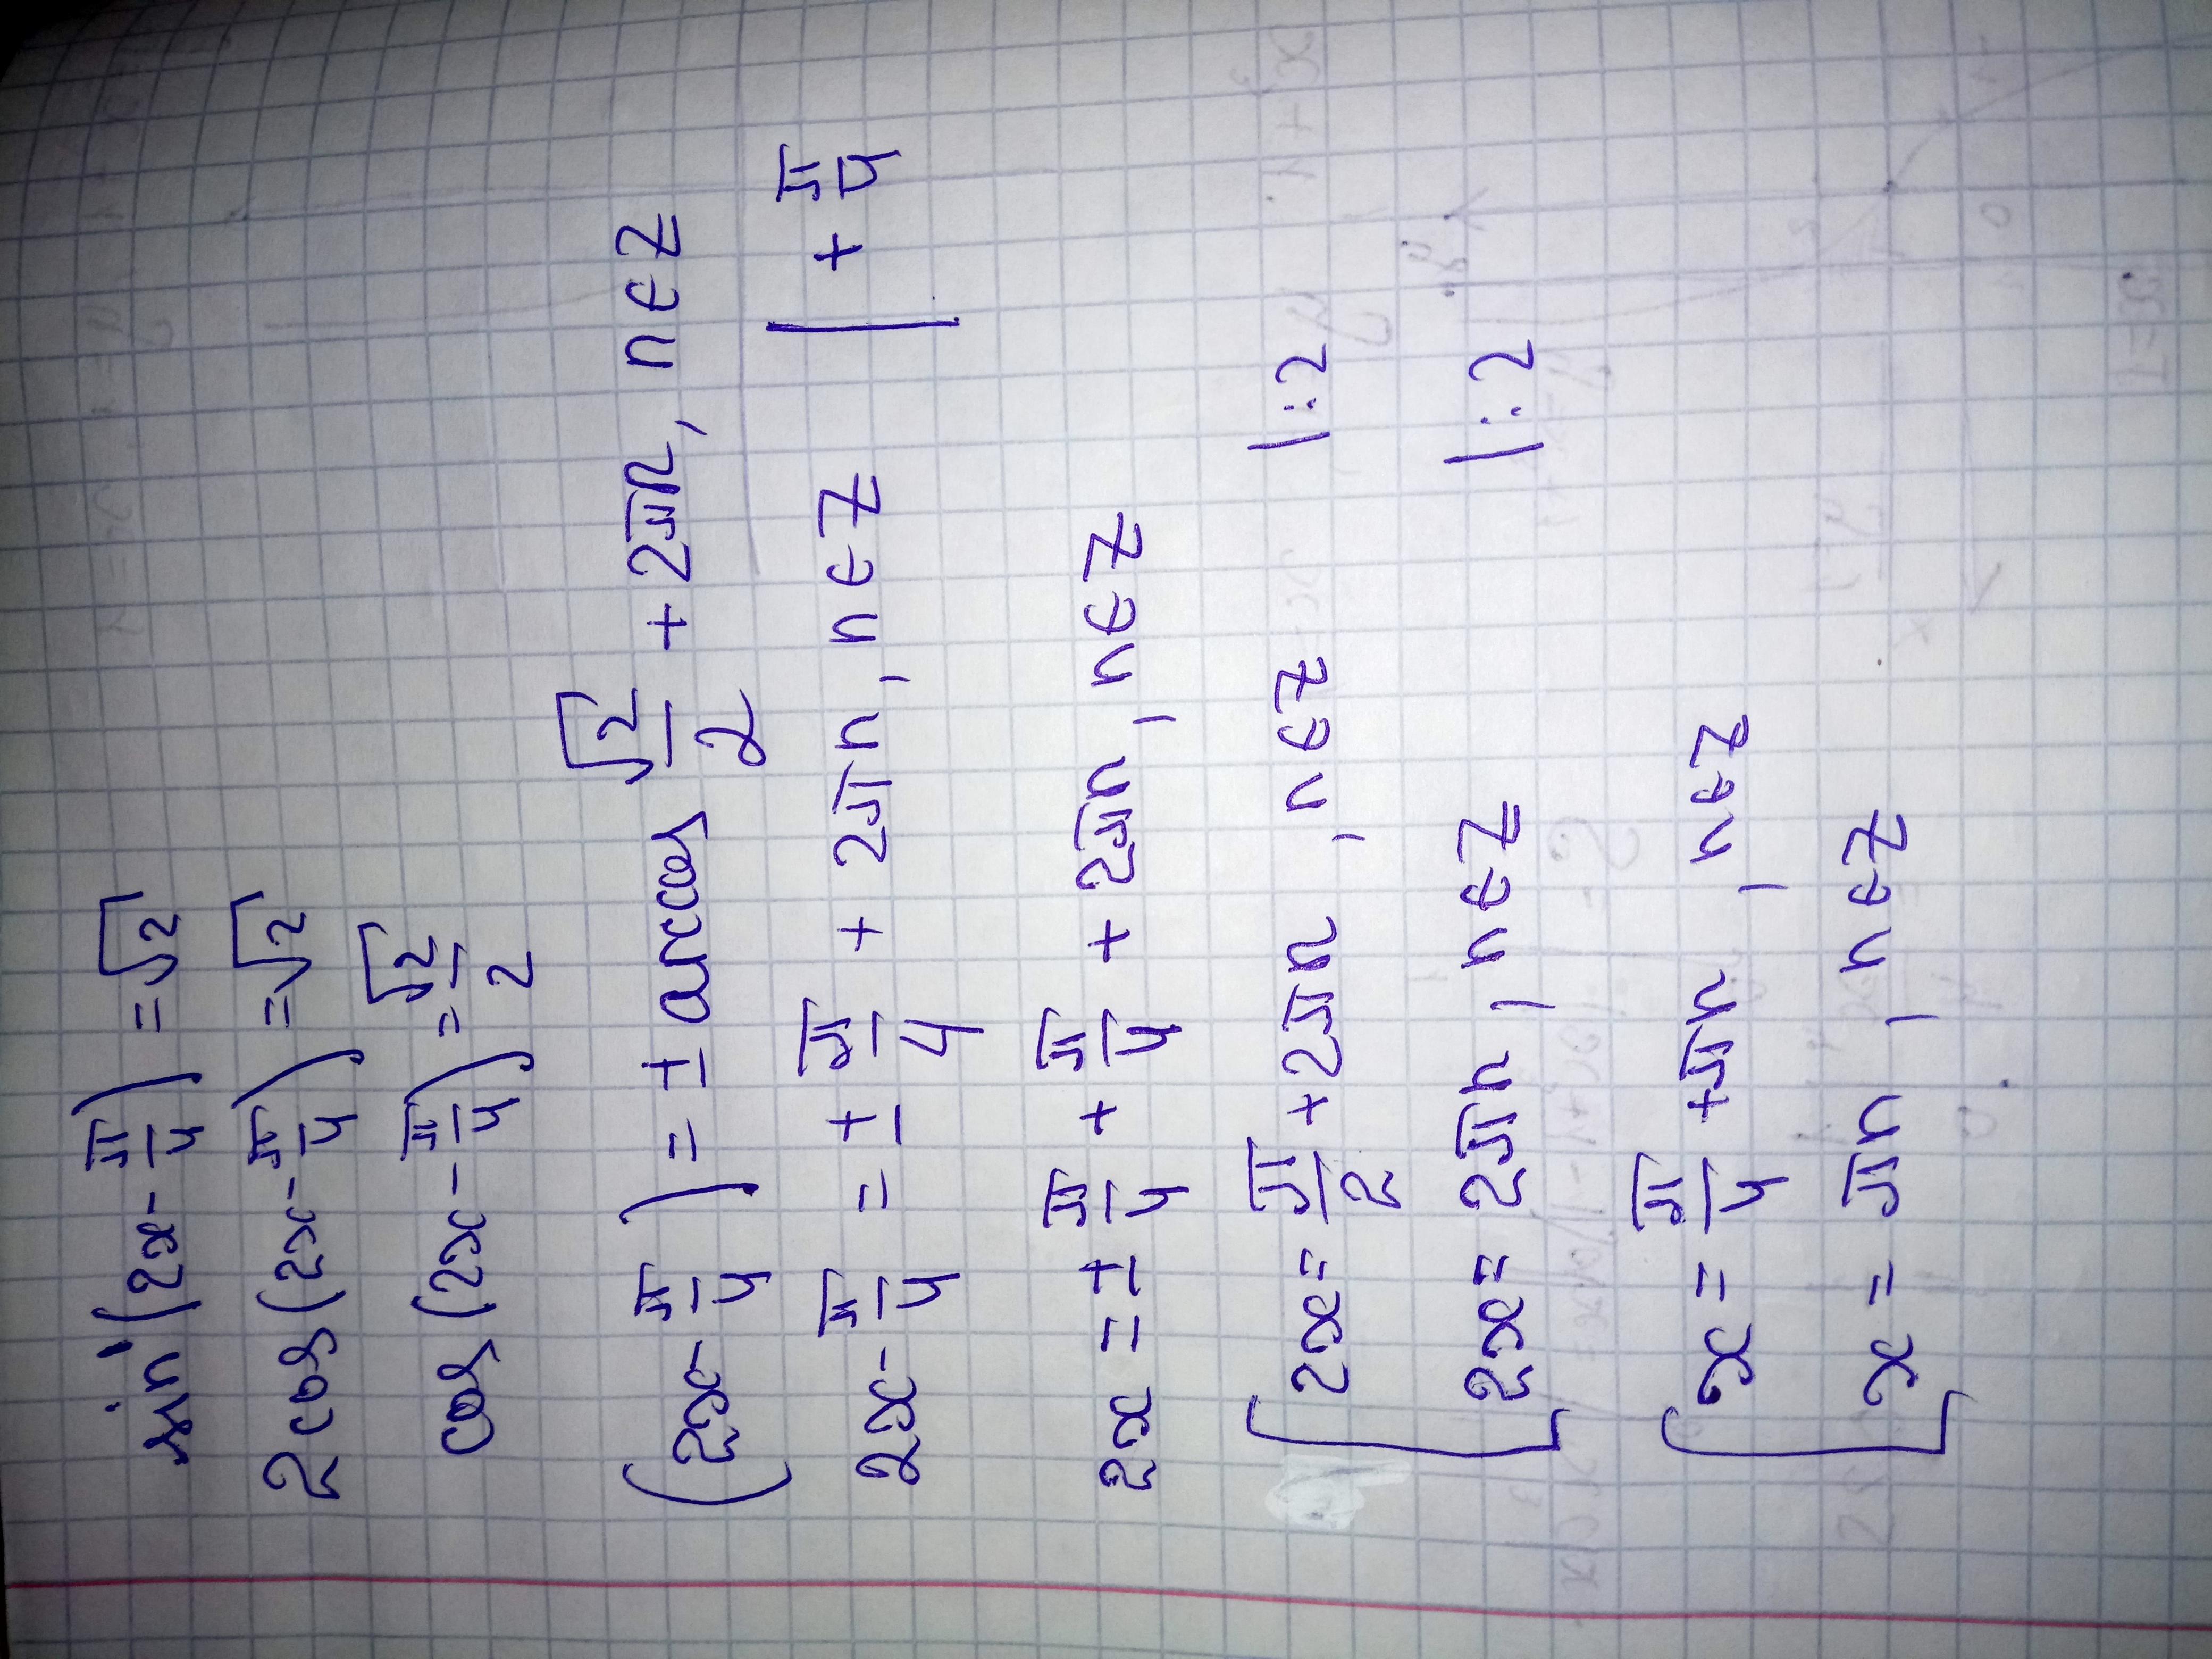 sin'(2x - π/4) = √2
2cos(2x - π/4) = √2
cos(2x - π/4) = √2/2
(2x - π/4) = ± arccos √2/2 + 2πn, n∈Z
2x - π/4 = ± π/4 + 2πn, n∈Z | + π/4
2x = ± π/4 + π/4 + 2πn, n∈Z
[ 2x = π/2 + 2πn, n∈Z |:2
2x = 2πn, n∈Z |:2
[ x = π/4 + πn, n∈Z
x = πn, n∈Z